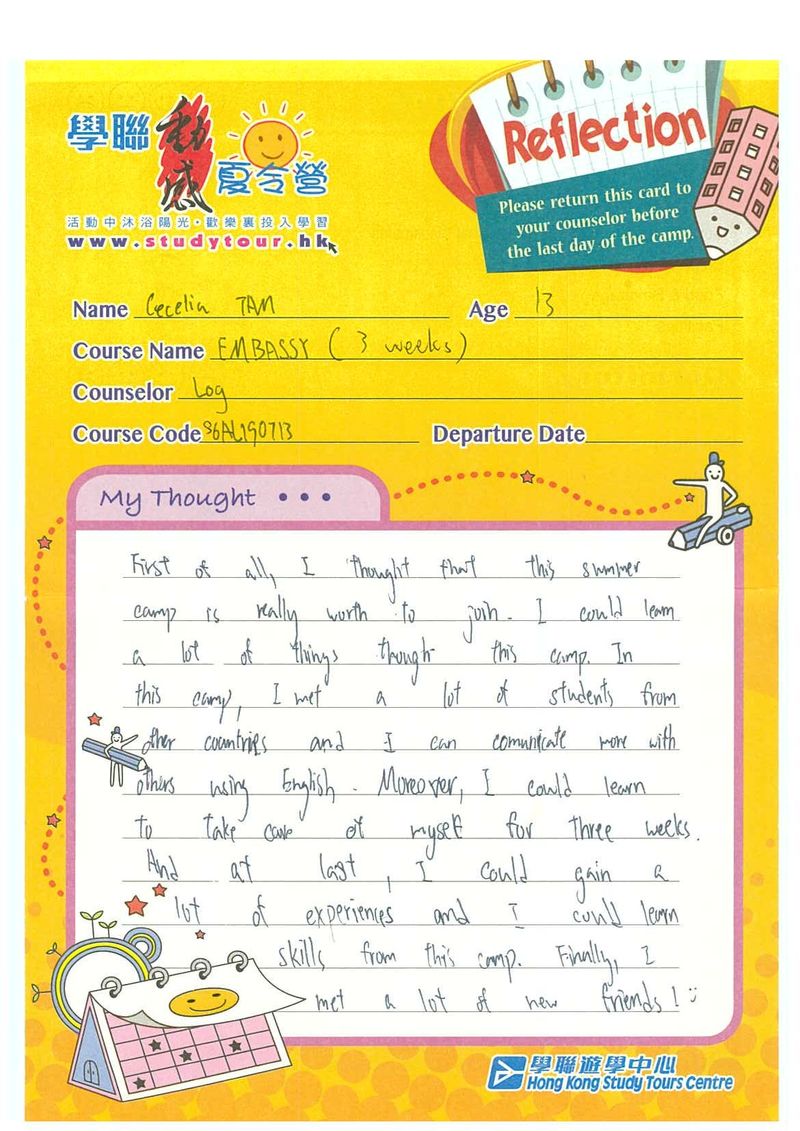 學聯 動感 夏令營
活動中沐浴陽光・歡樂裏投入學習
www.studytour.hk
Reflection
Please return this card to
your counselor before
the last day of the camp.
Name Cecelia TAN Age 13
Course Name EMBASSY (3 weeks)
Counselor Log
Course Code S6AL190713 Departure Date
My Thought • • •
First of all, I thought that this summer
camp is really worth to join. I could learn
a lot of things though this camp. In
this camp, I met a lot of students from
other countries and I can comunicate more with
others using English. Moreover, I could learn
to take care of myself for three weeks.
And at last, I could gain a
lot of experiences and I could learn
skills from this camp. Finally, I
met a lot of new friends! :)
學聯遊學中心
Hong Kong Study Tours Centre